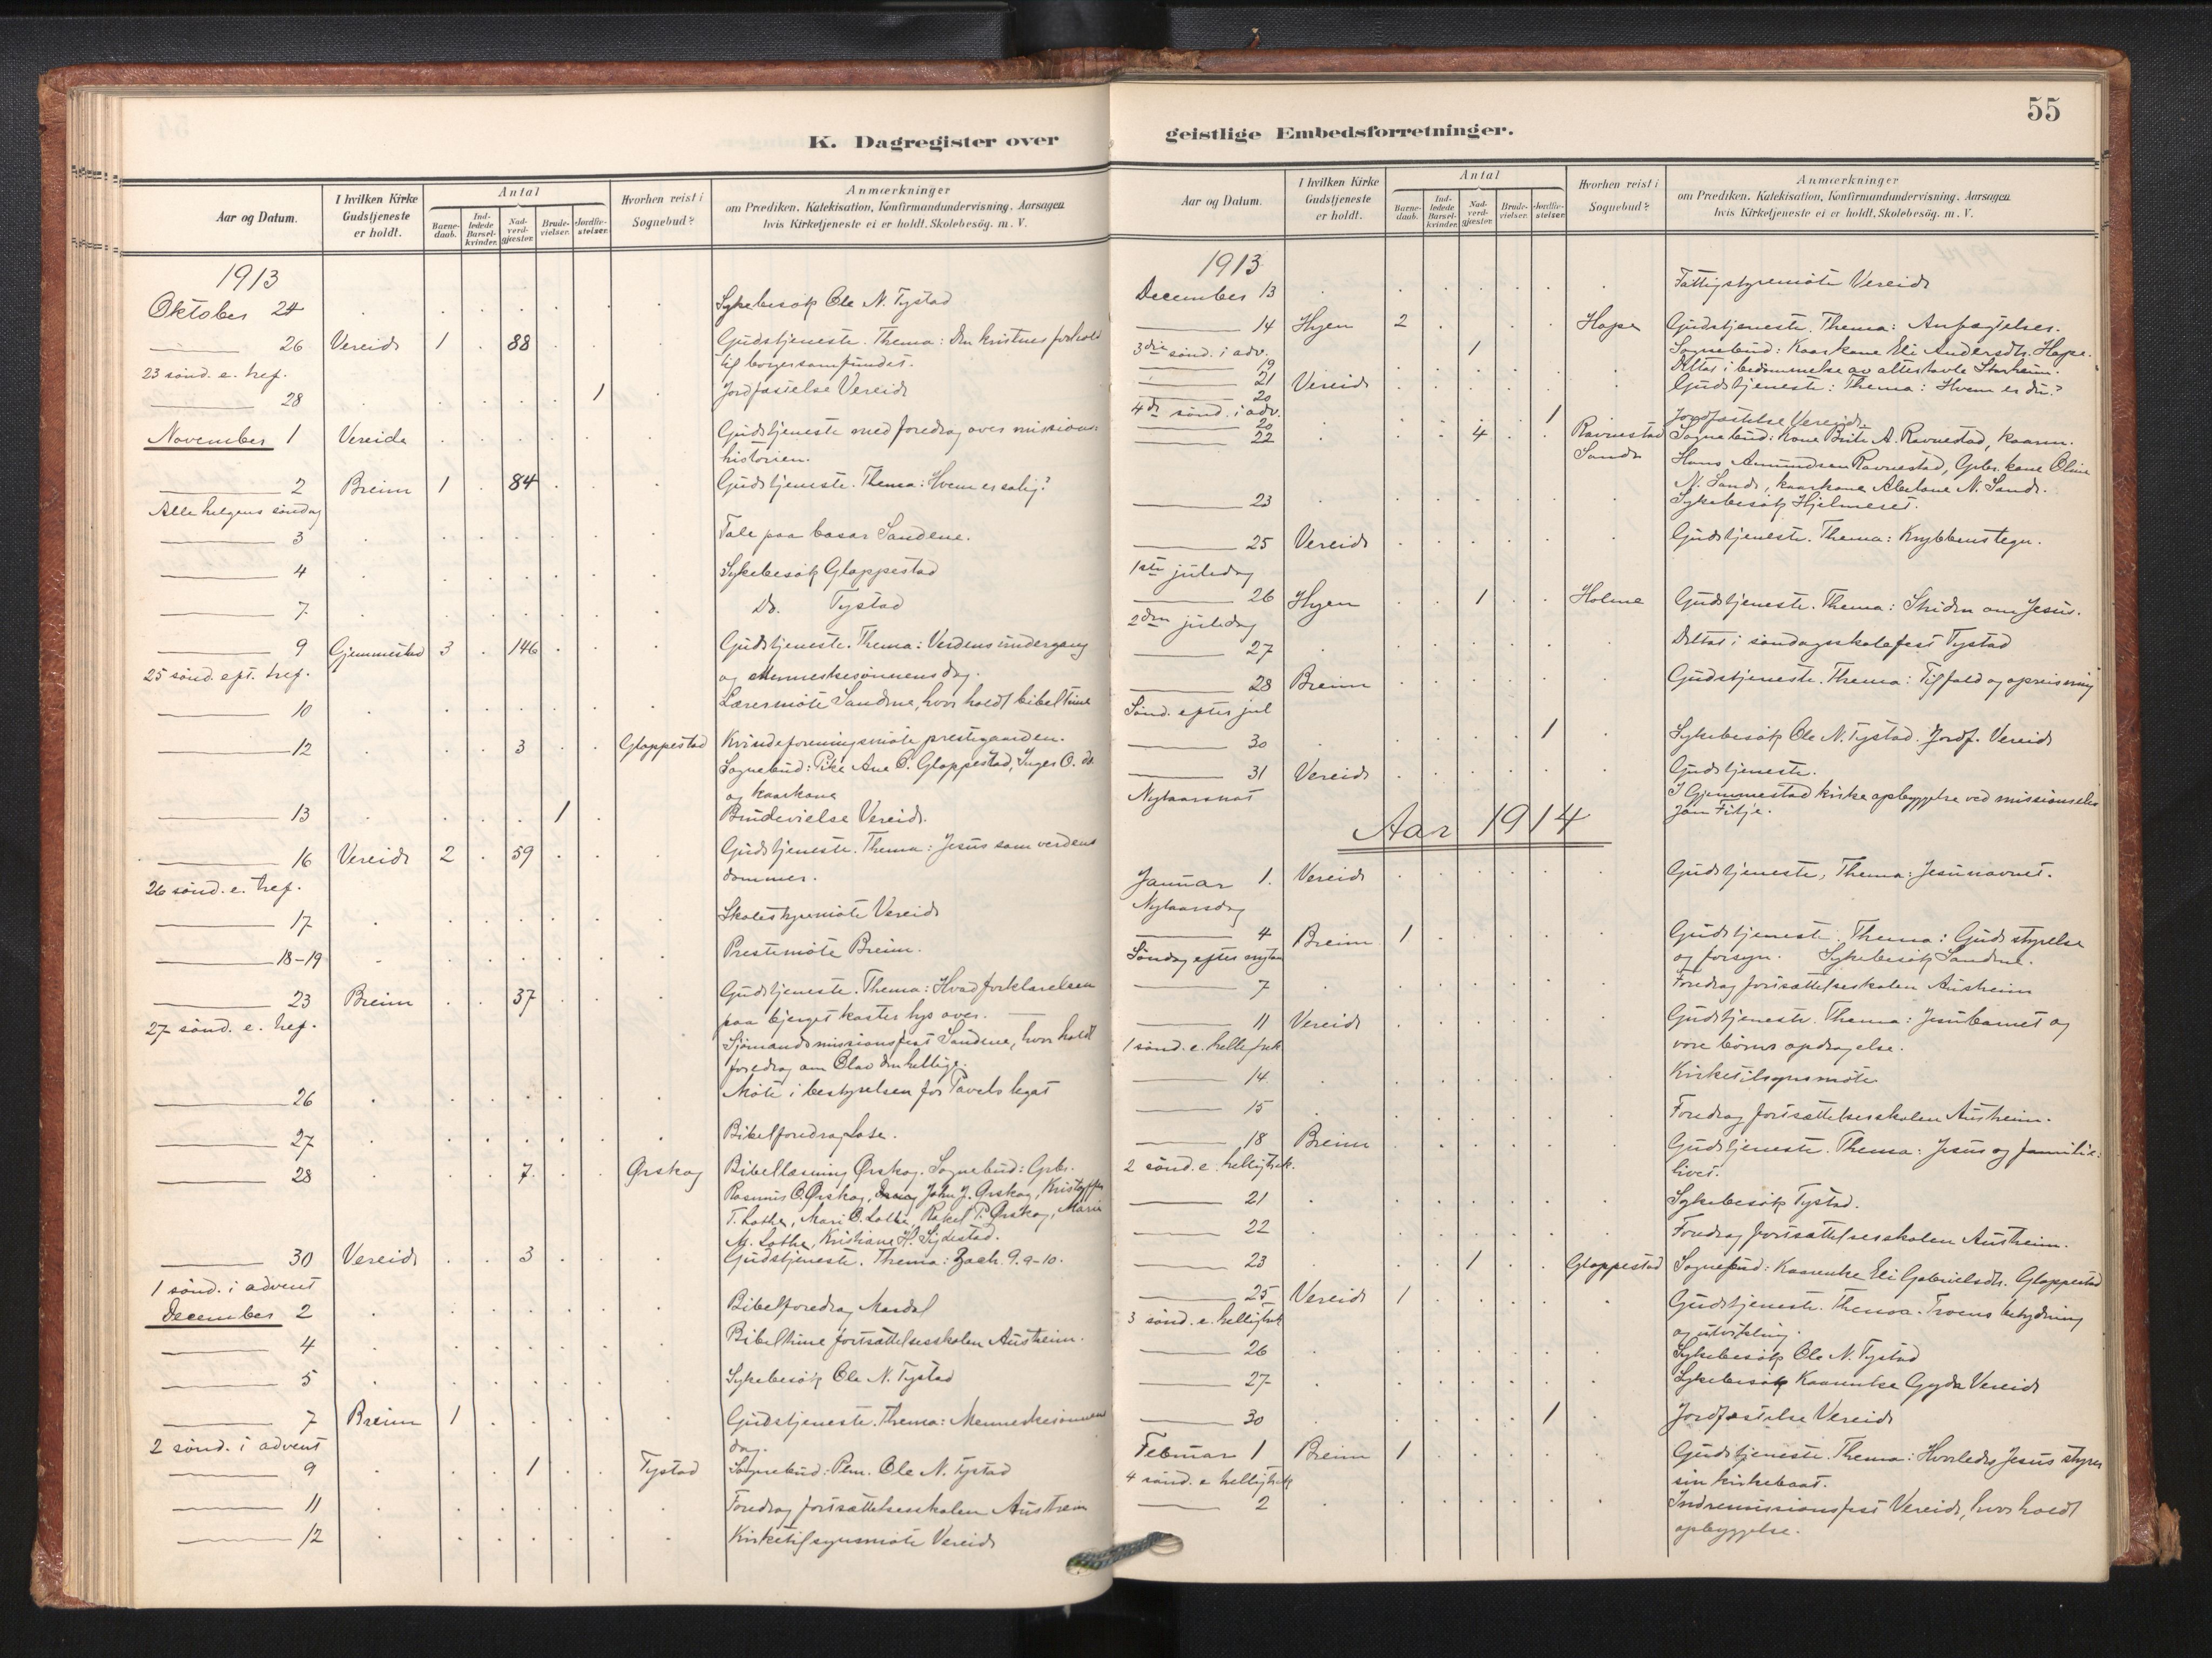 K. Dagregister over
Aar og Datum. I hvilken Kirke Gudstjeneste er holdt. Antal Barnedaab. Indledede Barselkvinder. Nadverdgjester. Brudevielser. Jordfæstelser. Hvorhen reist i Sognebud? Anmærkninger om Prædiken. Katekisation, Konfirmandundervisning. Aarsagen hvis Kirketjeneste ei er holdt. Skolebesög. m. V.
1913
Oktober 24 Sykebesøk Ole N. Tystad
26 Vereide 1 88 Gudstjeneste. Thema: Den kristnes forhold
23 sønd. e. tref. til borgersamfundet.
28 1 Jordfæstelse Vereide
November 1 Vereide Gudstjeneste med foredrag over missions
historien.
2 Breim 1 84 Gudstjeneste. Thema: Hvem er salig?
Alle helgens søndag
3 Tale paa basar Sandene.
4 Sykebesøk Gloppestad
7 Do. Tystad
9 Gjemmestad 3 146 Gudstjeneste. Thema: Verdens undergang
25 sønd. eft. tref. og Menneskesønnens dag.
10 Lærermøte Sandene, hvor holdt bibeltime
12 3 Gloppestad Kvindeforeningsmøte prestegaarden.
Sognebud: Pike Ane O. Gloppestad, Inger O. do
og kaarkone
13 1 Brudevielse Vereide.
16 Vereide 2 59 Gudstjeneste. Thema: Jesus som verdens
26 sønd. e. tref. dommer.
17 Skolestyremøte Vereide
18-19 Prestemøte Breim.
23 Breim 37 Gudstjeneste. Thema: Hvad forklarelsen
27 sønd. e. tref. paa bjerget kaster lys over.
Sjømandsmissionsfest Sandene, hvor holdt
foredrag om Olav den hellige.
26 Møte i bestyrelsen for Pavels legat
27 Bibelforedrag Lose.
28 7 Ørskog Bibellæsning Ørskog. Sognebud: Gbr.
Rasmus O. Ørskog, John J. Ørskog, Kristoffer
T. Lothe, Mari O. Lothe, Rakel P. Ørskog, Marie
M. Lothe, Kristiane H. Sigdestad.
30 Vereide 3 Gudstjeneste. Thema: Zach. 9. 9-10.
1 sønd. i advent
December 2 Bibelforedrag Mardal
4 Bibeltime fortsættelsesskolen Austreim.
5 Sykebesøk Ole N. Tystad
7 Breim 1 Gudstjeneste. Thema: Menneskesønnens
2 sønd. i advent dag.
9 1 Tystad Sognebud: Pem. Ole N. Tystad
11 Foredrag fortsættelsesskolen Austreim
12 Kirketilsynsmøte Vereide
55
geistlige Embedsforretninger.
Aar og Datum. I hvilken Kirke Gudstjeneste er holdt. Antal Barnedaab. Indledede Barselkvinder. Nadverdgjester. Brudevielser. Jordfæstelser. Hvorhen reist i Sognebud? Anmærkninger om Prædiken. Katekisation, Konfirmandundervisning. Aarsagen hvis Kirketjeneste ei er holdt. Skolebesög. m. V.
1913
December 13 Fattigstyremøte Vereide
14 Hyen 2 Hope Gudstjeneste. Thema: Anfægtelser.
3die sønd. i adv. 1 Sognebud: Kaarkone Eli Andersdtr. Hope.
19 Deltat i bedømmelse av altertavle Starheim.
21 Vereide Gudstjeneste: Thema: Hvem er du?
4de sønd. i adv.
20 1 Jordfæstelse Vereide
22 4 Ravnestad Sognebud: Kone Brite A. Ravnestad, kaarm.
Sande Hans Amundsen Ravnestad, Gbr. kone Oline
N. Sande, kaarkone Abelone N. Sande.
23 Sykebesøk Hjelmeset.
25 Vereide Gudstjeneste. Thema: Krybbens tegn.
1ste juledag
26 Hyen 1 Holme Gudstjeneste. Thema: Striden om Jesus.
2den juledag
27 Deltat i søndagsskolefest Tystad
28 Breim Gudstjeneste. Thema: Til fald og opreisning
Sønd. efter jul
30 1 Sykebesøk Ole N. Tystad. Jordf. Vereide
31 Vereide Gudstjeneste.
Nytaarsnat I Gjemmestad kirke opbyggelse ved
Aar 1914
Januar 1. Vereide Gudstjeneste, Thema: Jesunavnet.
Nytaarsdag
4 Breim 1 Gudstjeneste. Thema: Guds styrelse
Søndag efter nytaar og forsyn. Sykebesøk Sandene.
7 Foredrag fortsættelsesskolen Austreim
11 Vereide Gudstjeneste. Thema: Jesubarnet og
1 sønd. e. hellitrek. vore børns opdragelse.
14 Kirketilsynsmøte
15 Foredrag fortsættelsesskolen Austreim.
18 Breim Gudstjeneste. Thema: Jesus og familie-
2 sønd. e. helligtrek. livet.
21 Sykebesøk Tystad.
22 Foredrag fortsættelsesskolen Austreim.
23 1 Gloppestad Sognebud: Kaarenke Eli Gabrielsdtr. Gloppestad
25 Vereide 1 Gudstjeneste. Thema. Troens betydning
3 sønd. e. helligtrek og utvikling.
26 Sykebesøk Ole N. Tystad
27 Sykebesøk Kaarenke Gyda Vereide
30 1 Jordfæstelse Vereide
Februar 1 Breim 1 Gudstjeneste. Thema: Hvorledes Jesus styrer
4 sønd. e helligtrek sin kirkebaat.
2 Indremissionsfest Vereide, hvor holdt
opbyggelse.